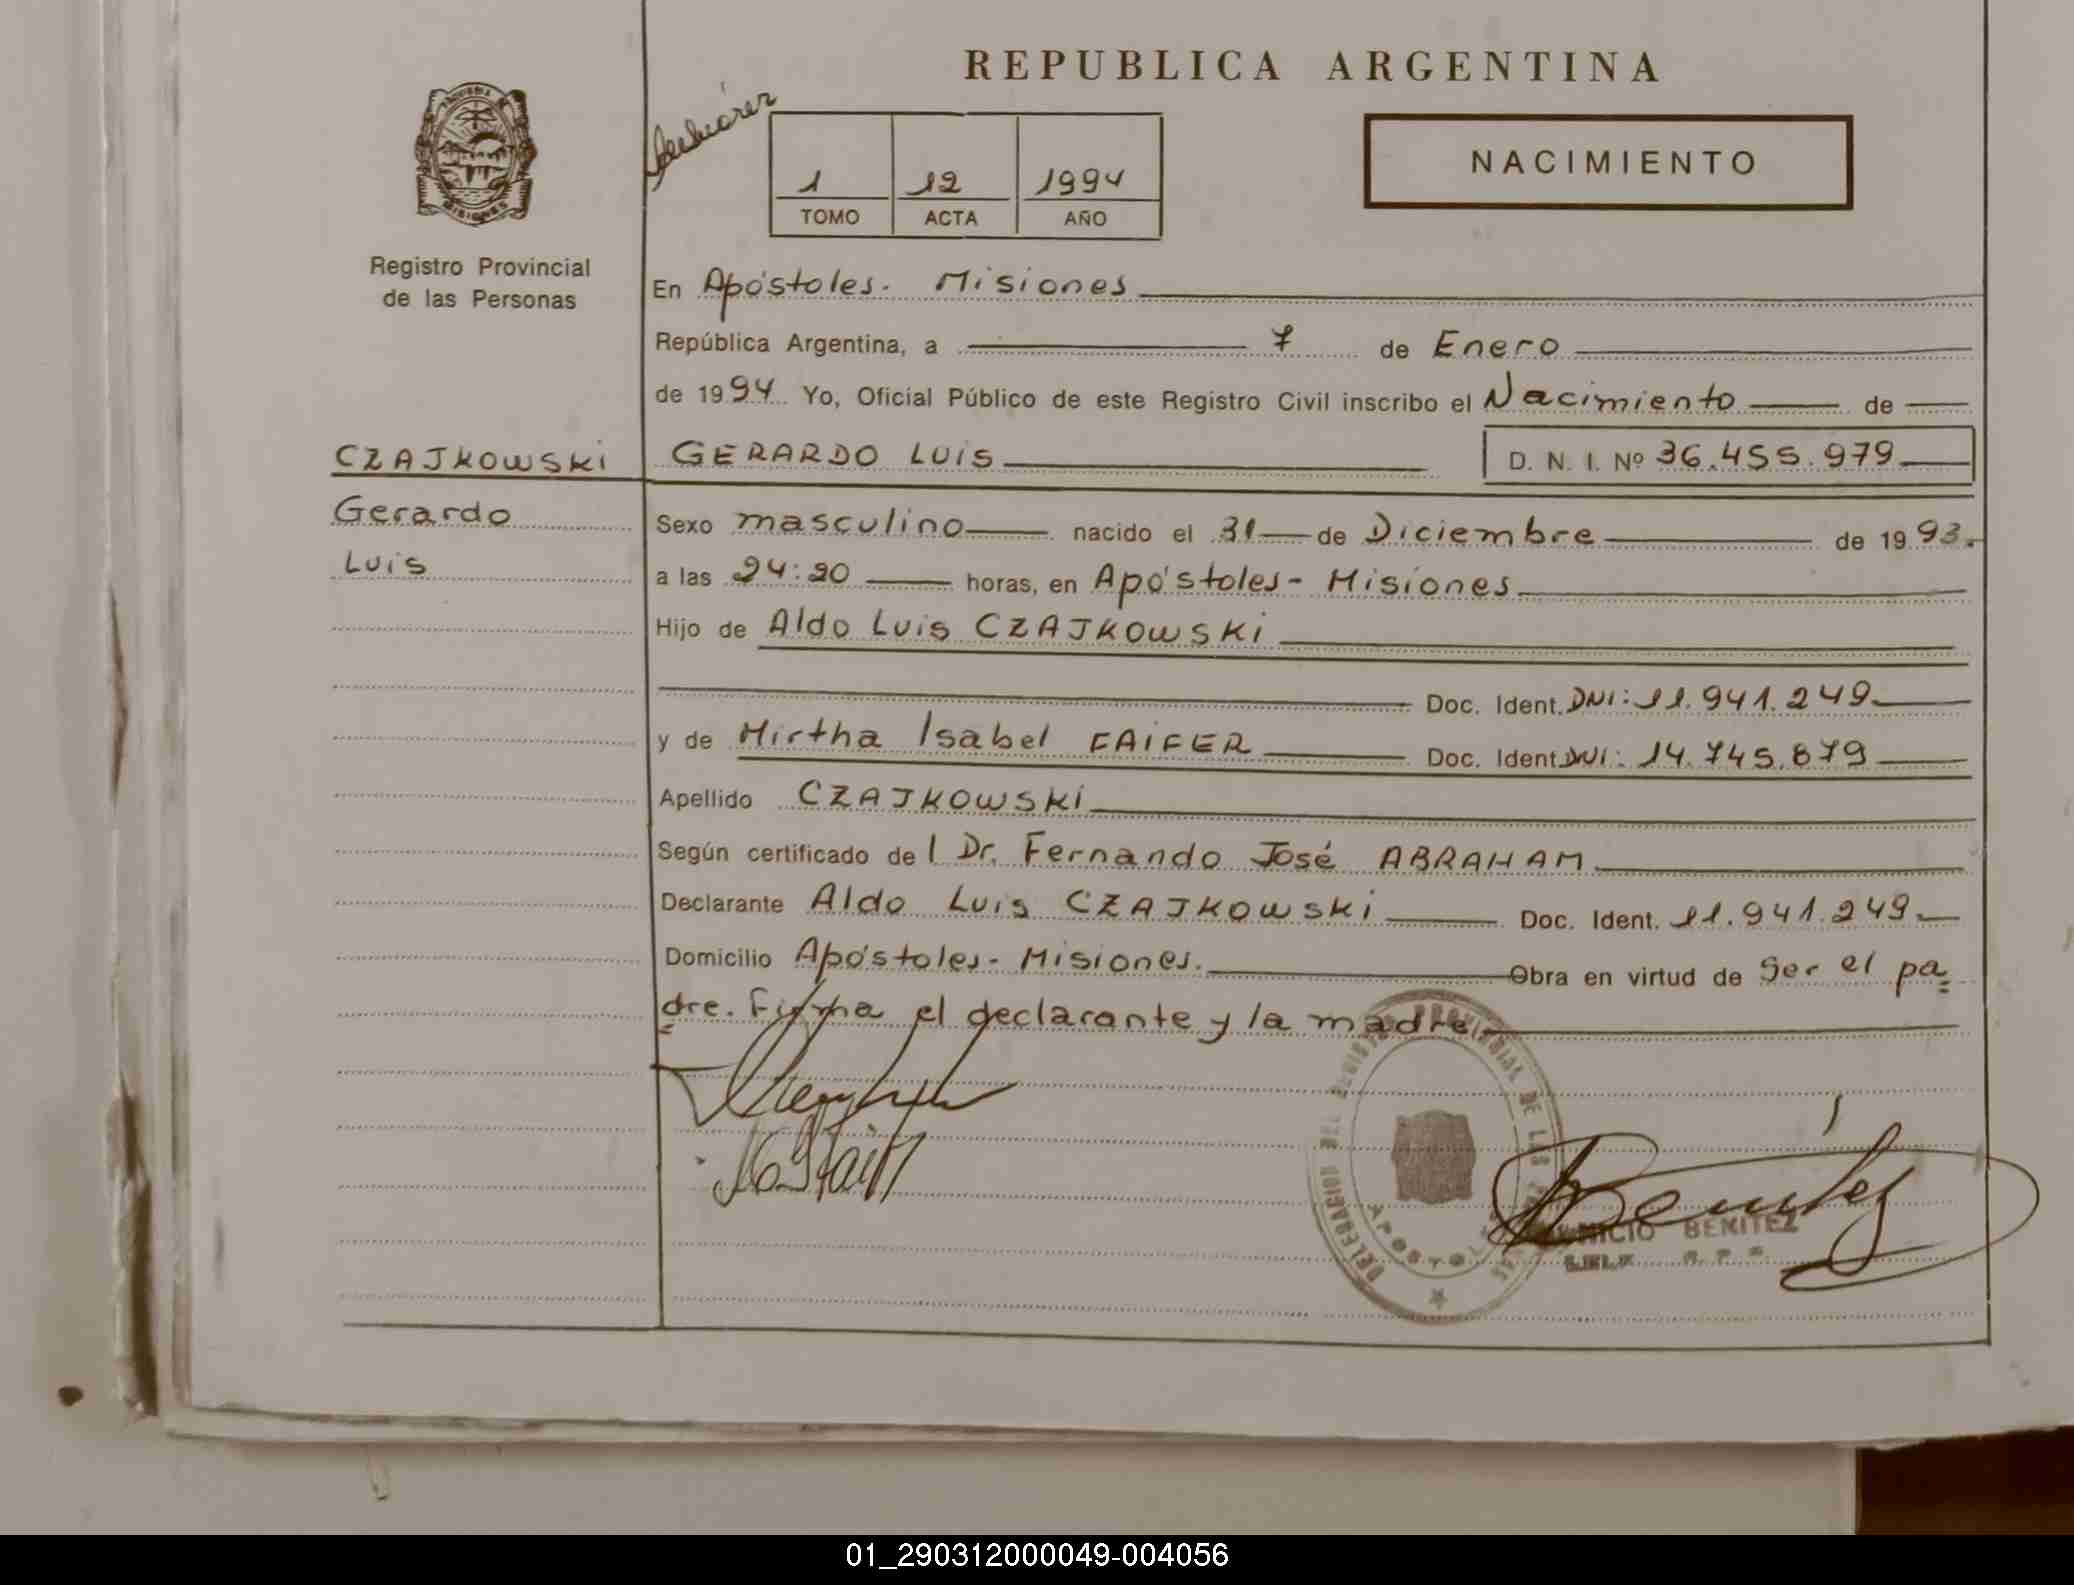 REPUBLICA ARGENTINA
NACIMIENTO
1 12 1994
TOMO ACTA AÑO
MISIONES
Registro Provincial
de las Personas
En Apóstoles - Misiones
República Argentina, a 7 de Enero
de 1994 Yo, Oficial Público de este Registro Civil inscribo el Nacimiento de
CZAJKOWSKI GERARDO LUIS D. N. I. Nº 36.455.979
Gerardo
Luis
Sexo masculino nacido el 31 de Diciembre de 1993.
a las 24:20 horas, en Apóstoles - Misiones
Hijo de Aldo Luis CZAJKOWSKI
Doc. Ident. DNI: 11.941.249
y de Mirtha Isabel FAIFER Doc. Ident. DNI: 14.745.879
Apellido CZAJKOWSKI
Según certificado del Dr. Fernando José ABRAHAM
Declarante Aldo Luis CZAJKOWSKI Doc. Ident. 11.941.249
Domicilio Apóstoles - Misiones. Obra en virtud de ser el pa
dre. Firma el declarante y la madre
DELEGACION DEL REGISTRO PROVINCIAL DE LAS
APOSTOLES
Benítez
BENITEZ
01_290312000049-004056